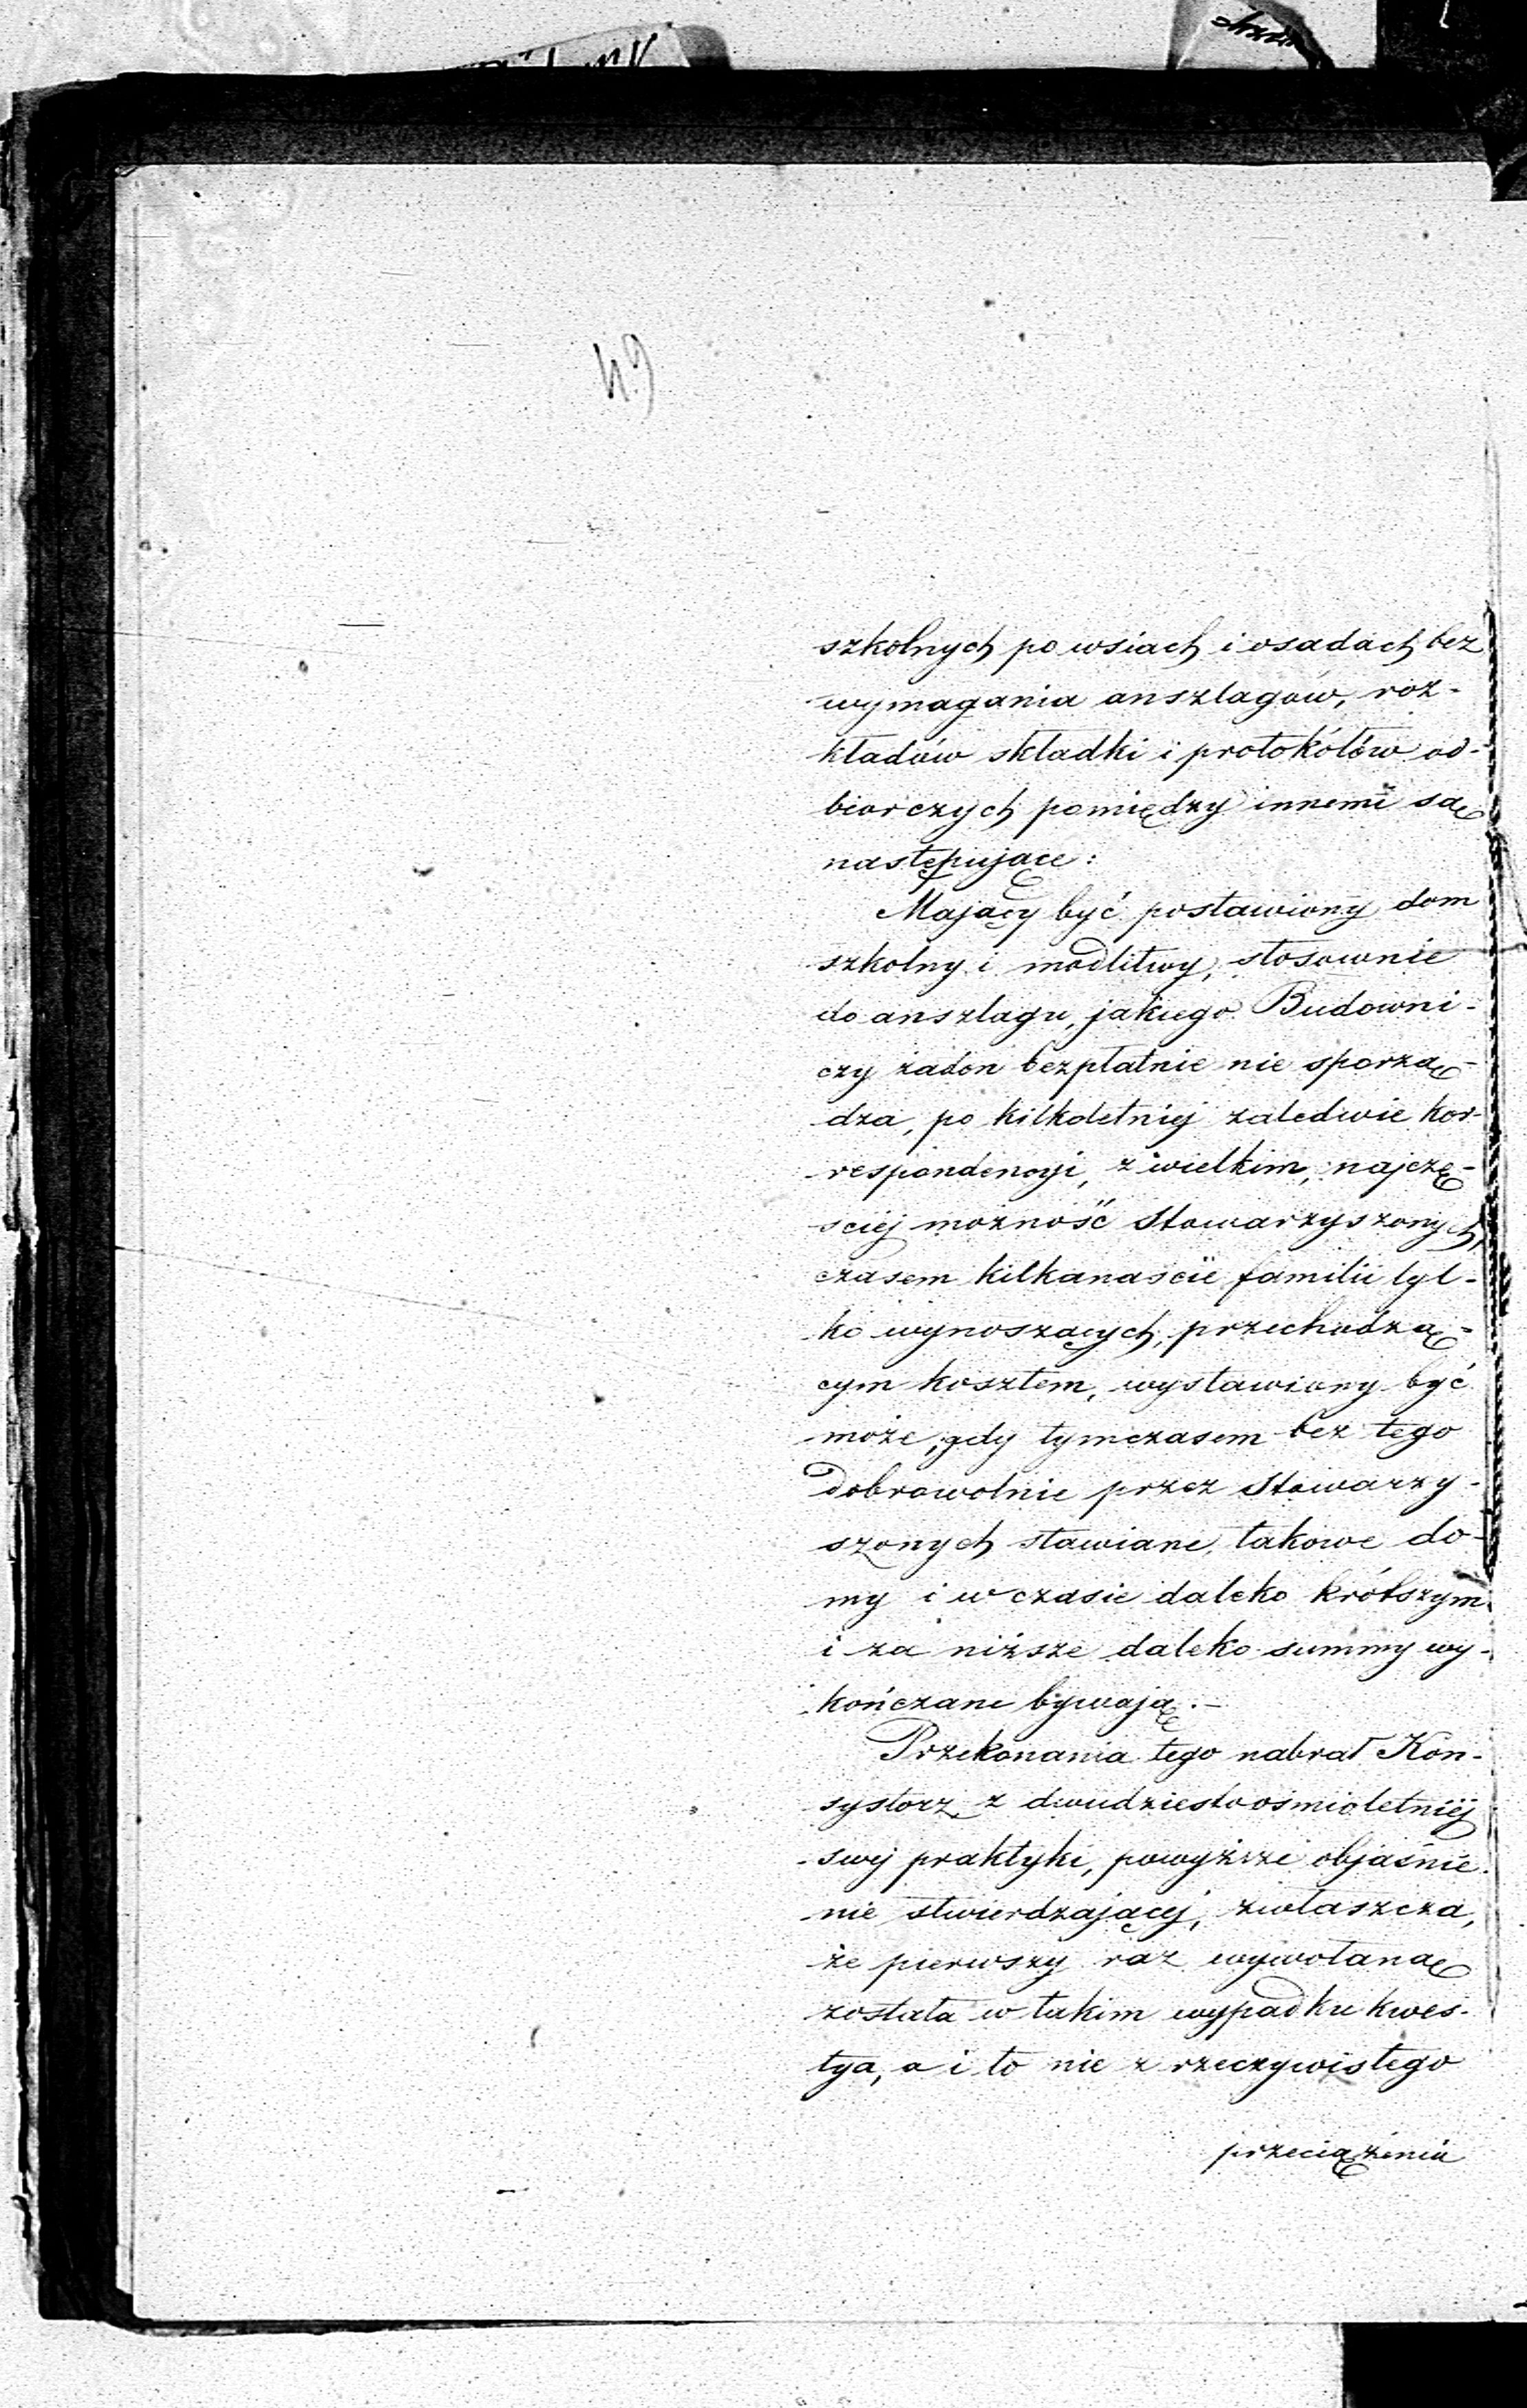 49
szkolnych po wsiach i osadach bez
wymagania anszlagów, roz-
kładów składki i protokółów od-
biorczych pomiędzy innemi są
następujące:
Mający być postawiony dom
szkolny i modlitwy, stosownie
do anszlagu, jakiego Budowni-
czy żaden bezpłatnie nie sporzą-
dza, po kilkoletniej zaledwie kor-
respondencyi, z wielkim, najczę-
ściej możność Stowarzyszonych,
czasem kilkanaście familii tyl-
ko wynoszących, przechodzą-
cym kosztem, wystawiony być
może, gdy tymczasem bez tego
dobrowolnie przez Stowarzy-
szonych stawiane, takowe do-
my i w czasie daleko krótszym
i za niższe daleko summy wy-
kończane bywają.-
Przekonania tego nabrał Kon-
systorz z dwudziestoośmioletniéj
swej praktyki, powyższe objaśnie-
nie stwierdzającej, zwłaszcza,
że pierwszy raz wywołaną
została w takim wypadku kwes-
tya, a i to nie z rzeczywistego
przeciążenia